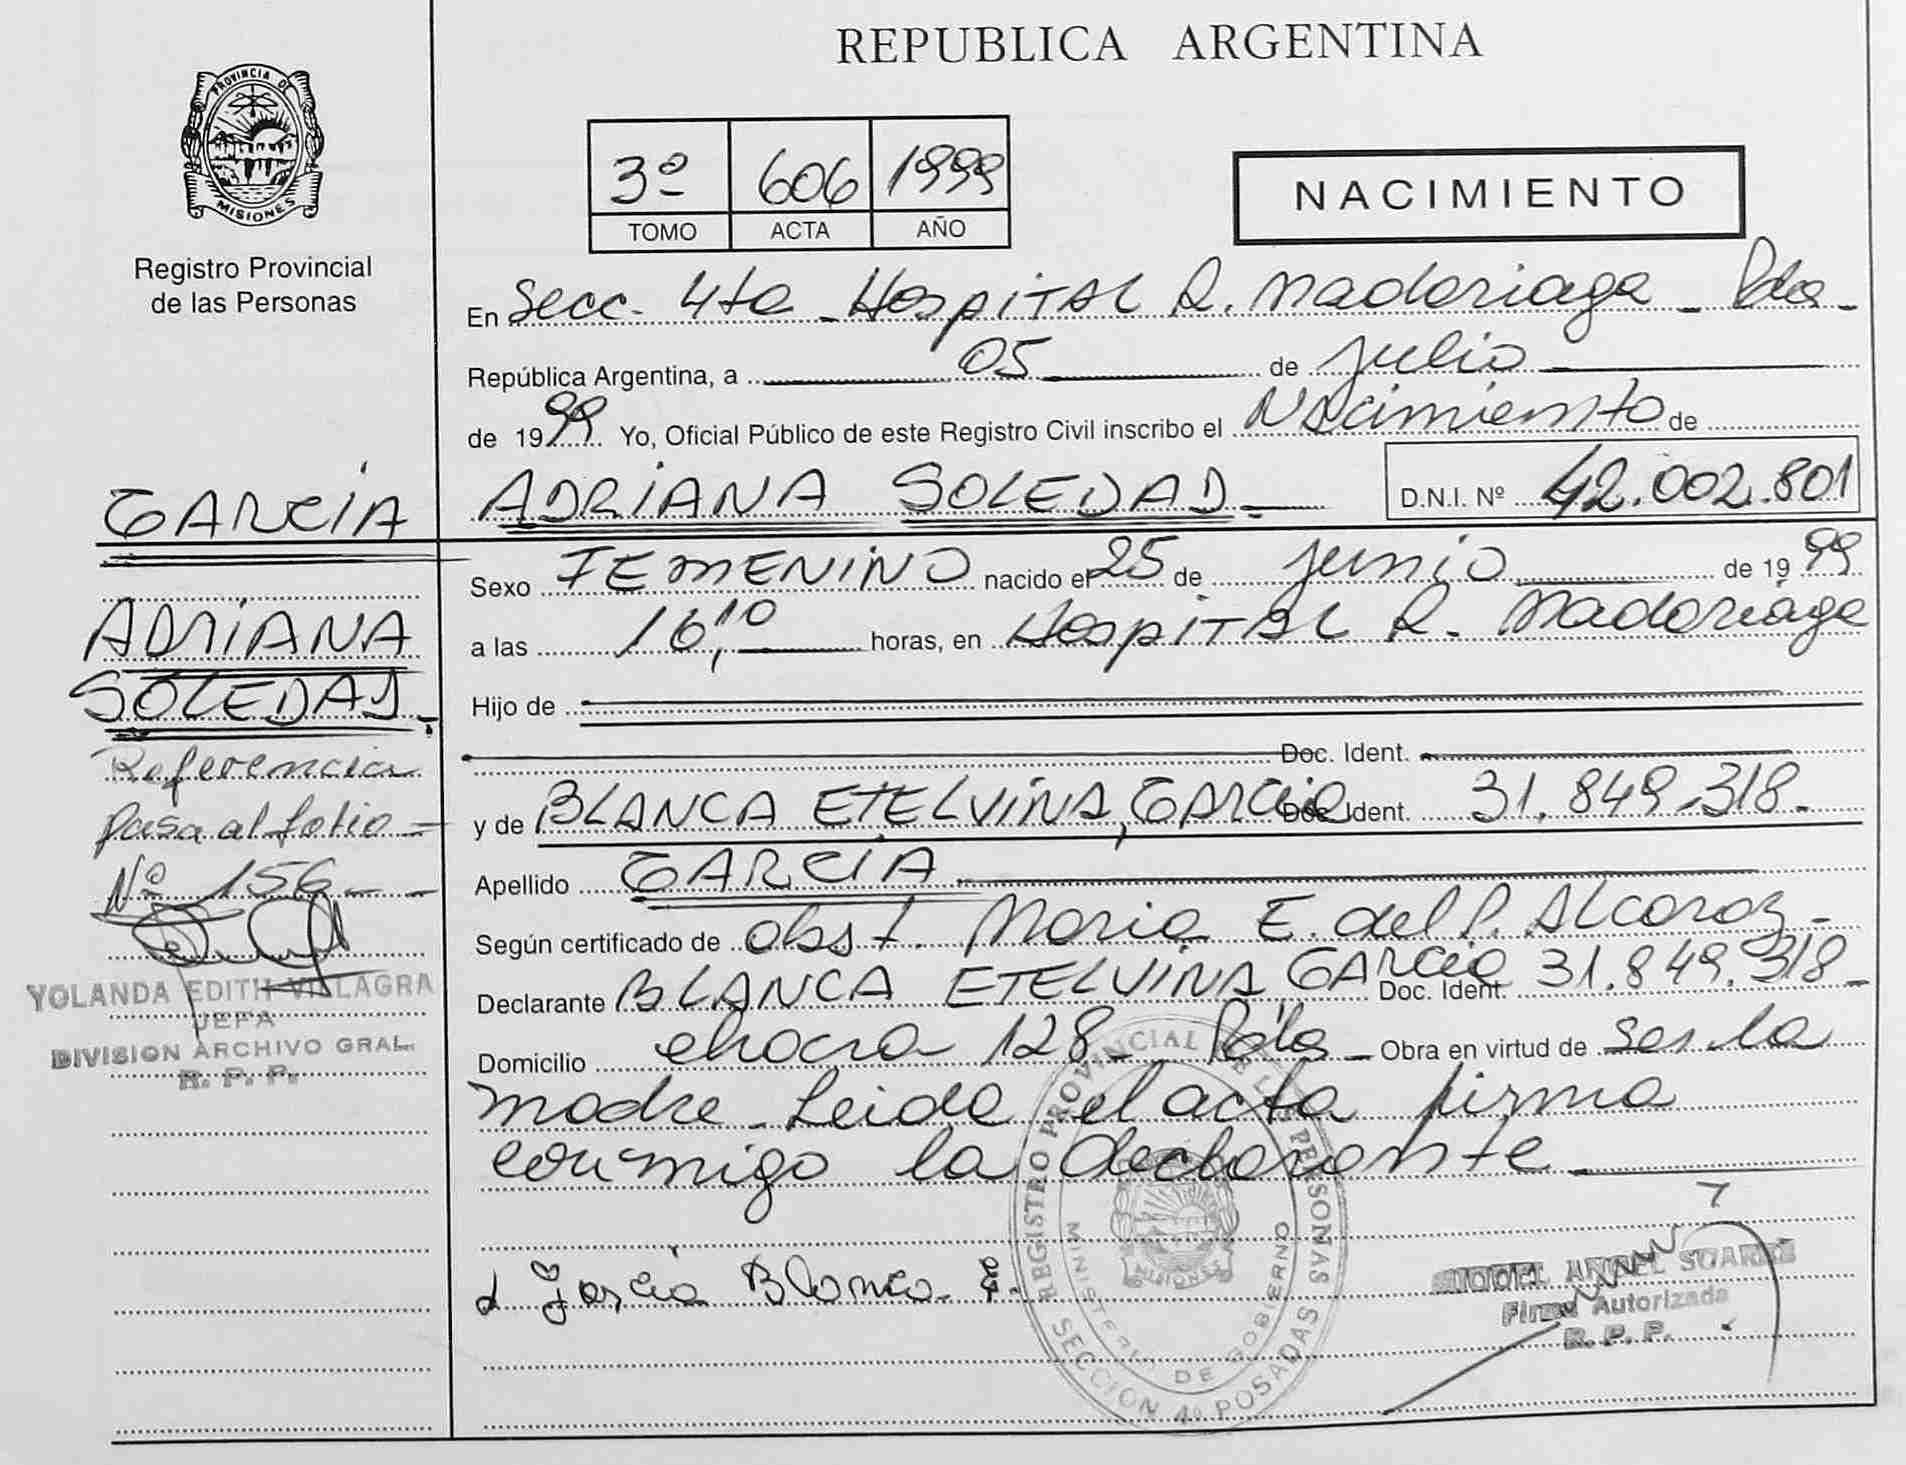 REPUBLICA ARGENTINA
PROVINCIA DE
MISIONES
Registro Provincial
de las Personas
3º 606 1999
TOMO ACTA AÑO
NACIMIENTO
En Secc. 4ta - Hospital R. Madariaga - Pdas -
República Argentina, a 05 de julio
de 1999 Yo, Oficial Público de este Registro Civil inscribo el Nacimiento de
GARCÍA ADRIANA SOLEDAD.- D.N.I. Nº 42.002.801
Sexo FEMENINO nacido el 25 de junio de 1999
a las 16,10 horas, en Hospital R. Madariaga
Hijo de
Doc. Ident.
y de BLANCA ETELVINA, GARCIA Doc. Ident. 31.849.318.-
Apellido GARCÍA
Según certificado de obst. Maria E. del P. Alcaraz -
Declarante BLANCA ETELVINA GARCIA Doc. Ident. 31.849.318 -
Domicilio chacra 128 - Pdas - Obra en virtud de ser la
madre - Leida el acta firma
conmigo la declarante -
Garcia Blanca E.
ADRIANA
SOLEDAD.-
Referencia
pasa al folio -
Nº 156 - -
YOLANDA EDITH VILLAGRA
JEFA
DIVISION ARCHIVO GRAL.
R. P. P.
REGISTRO PROVINCIAL DE LAS PERSONAS
MINISTERIO DE GOBIERNO
MISIONES
SECCION 4º POSADAS
MIGUEL ANGEL SUAREZ
Firma Autorizada
R. P. P.